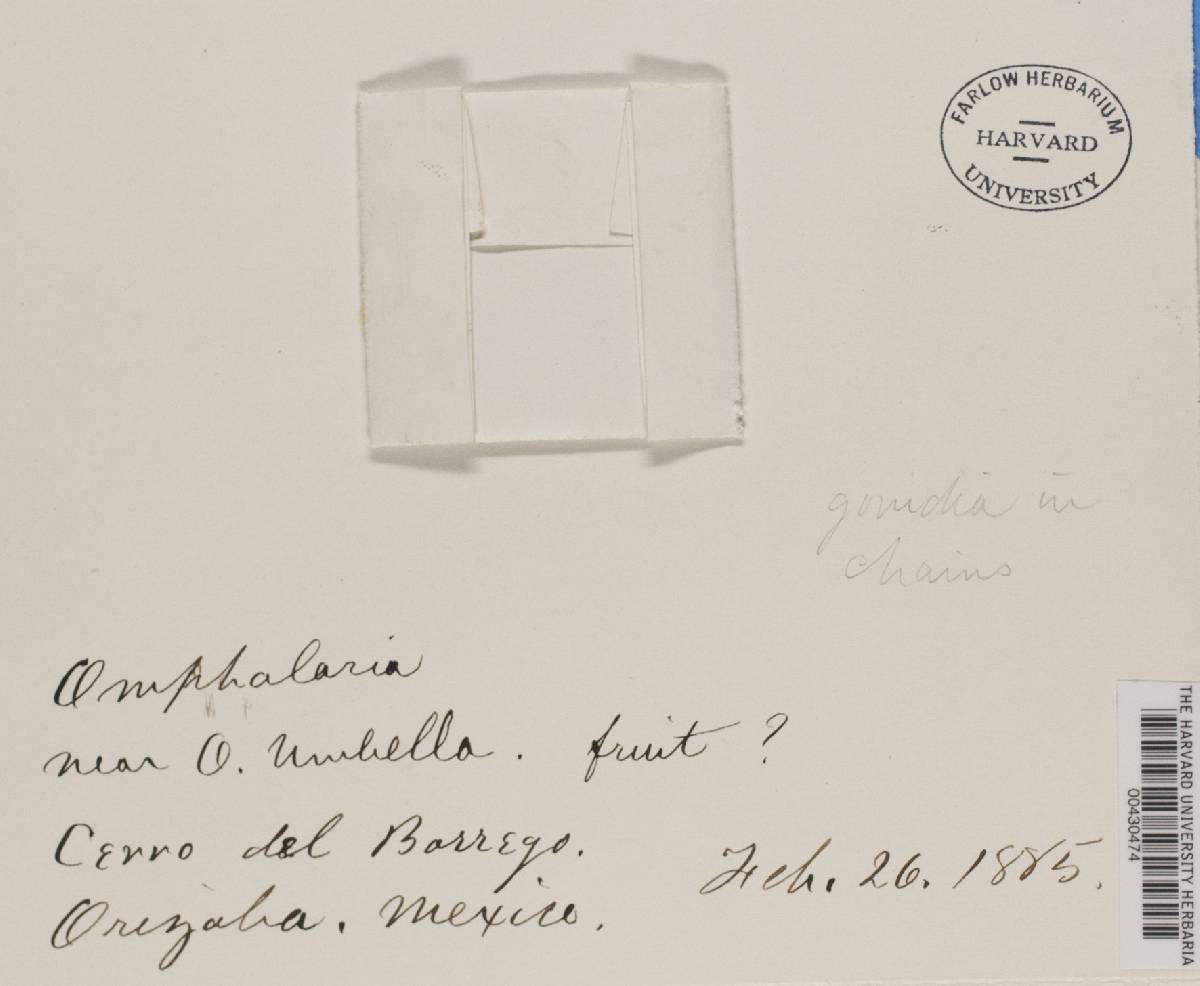 FARLOW HERBARIUM
HARVARD
UNIVERSITY
gonidia in
chains
Omphalaria
near O. Umbella. fruit?
Cerro del Borrego.
Orizaba. Mexico.
Feb. 26. 1885.
THE HARVARD UNIVERSITY HERBARIA
00430474